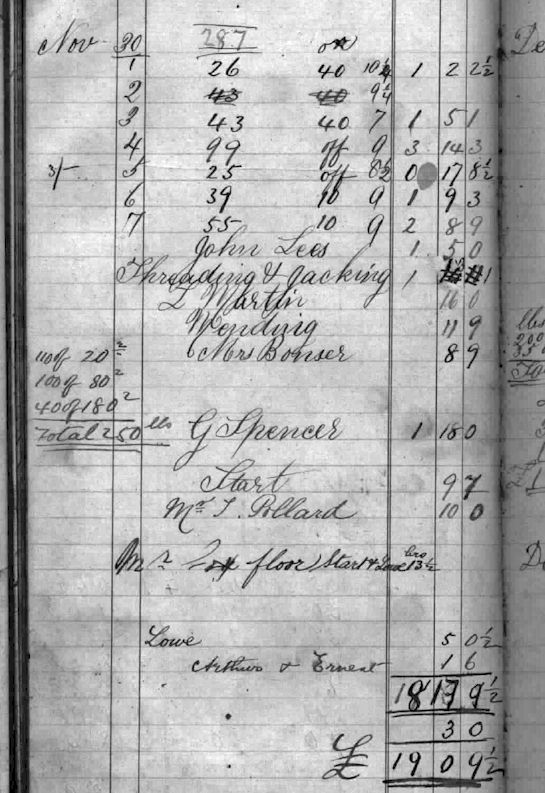 Nov 30 287 on
1 26 40 10¼ 1 2 2½
2 43 40 9¼
3 43 40 7 1 5 1
4 99 off 9 3 14 3
3/- 5 25 off 8½ 0 17 8½
6 39 10 9 1 9 3
7 55 10 9 2 8 9
John Lees 1 5 0
Threading & Jacking 1 1
Martin 16 0
Wending 11 9
110 of 20² Mrs Bonser 8 9
100 of 80²
40 of 180²
Total 250 lbs G Spencer 1 18 0
Start 9 7
Mr T. Pollard 10 0
floor Start & Lowe hrs 13½
Lowe 5 0½
Arthur & Ernest 1 6
18 17 9½
3 0
£ 19 0 9½
De
lbs
200